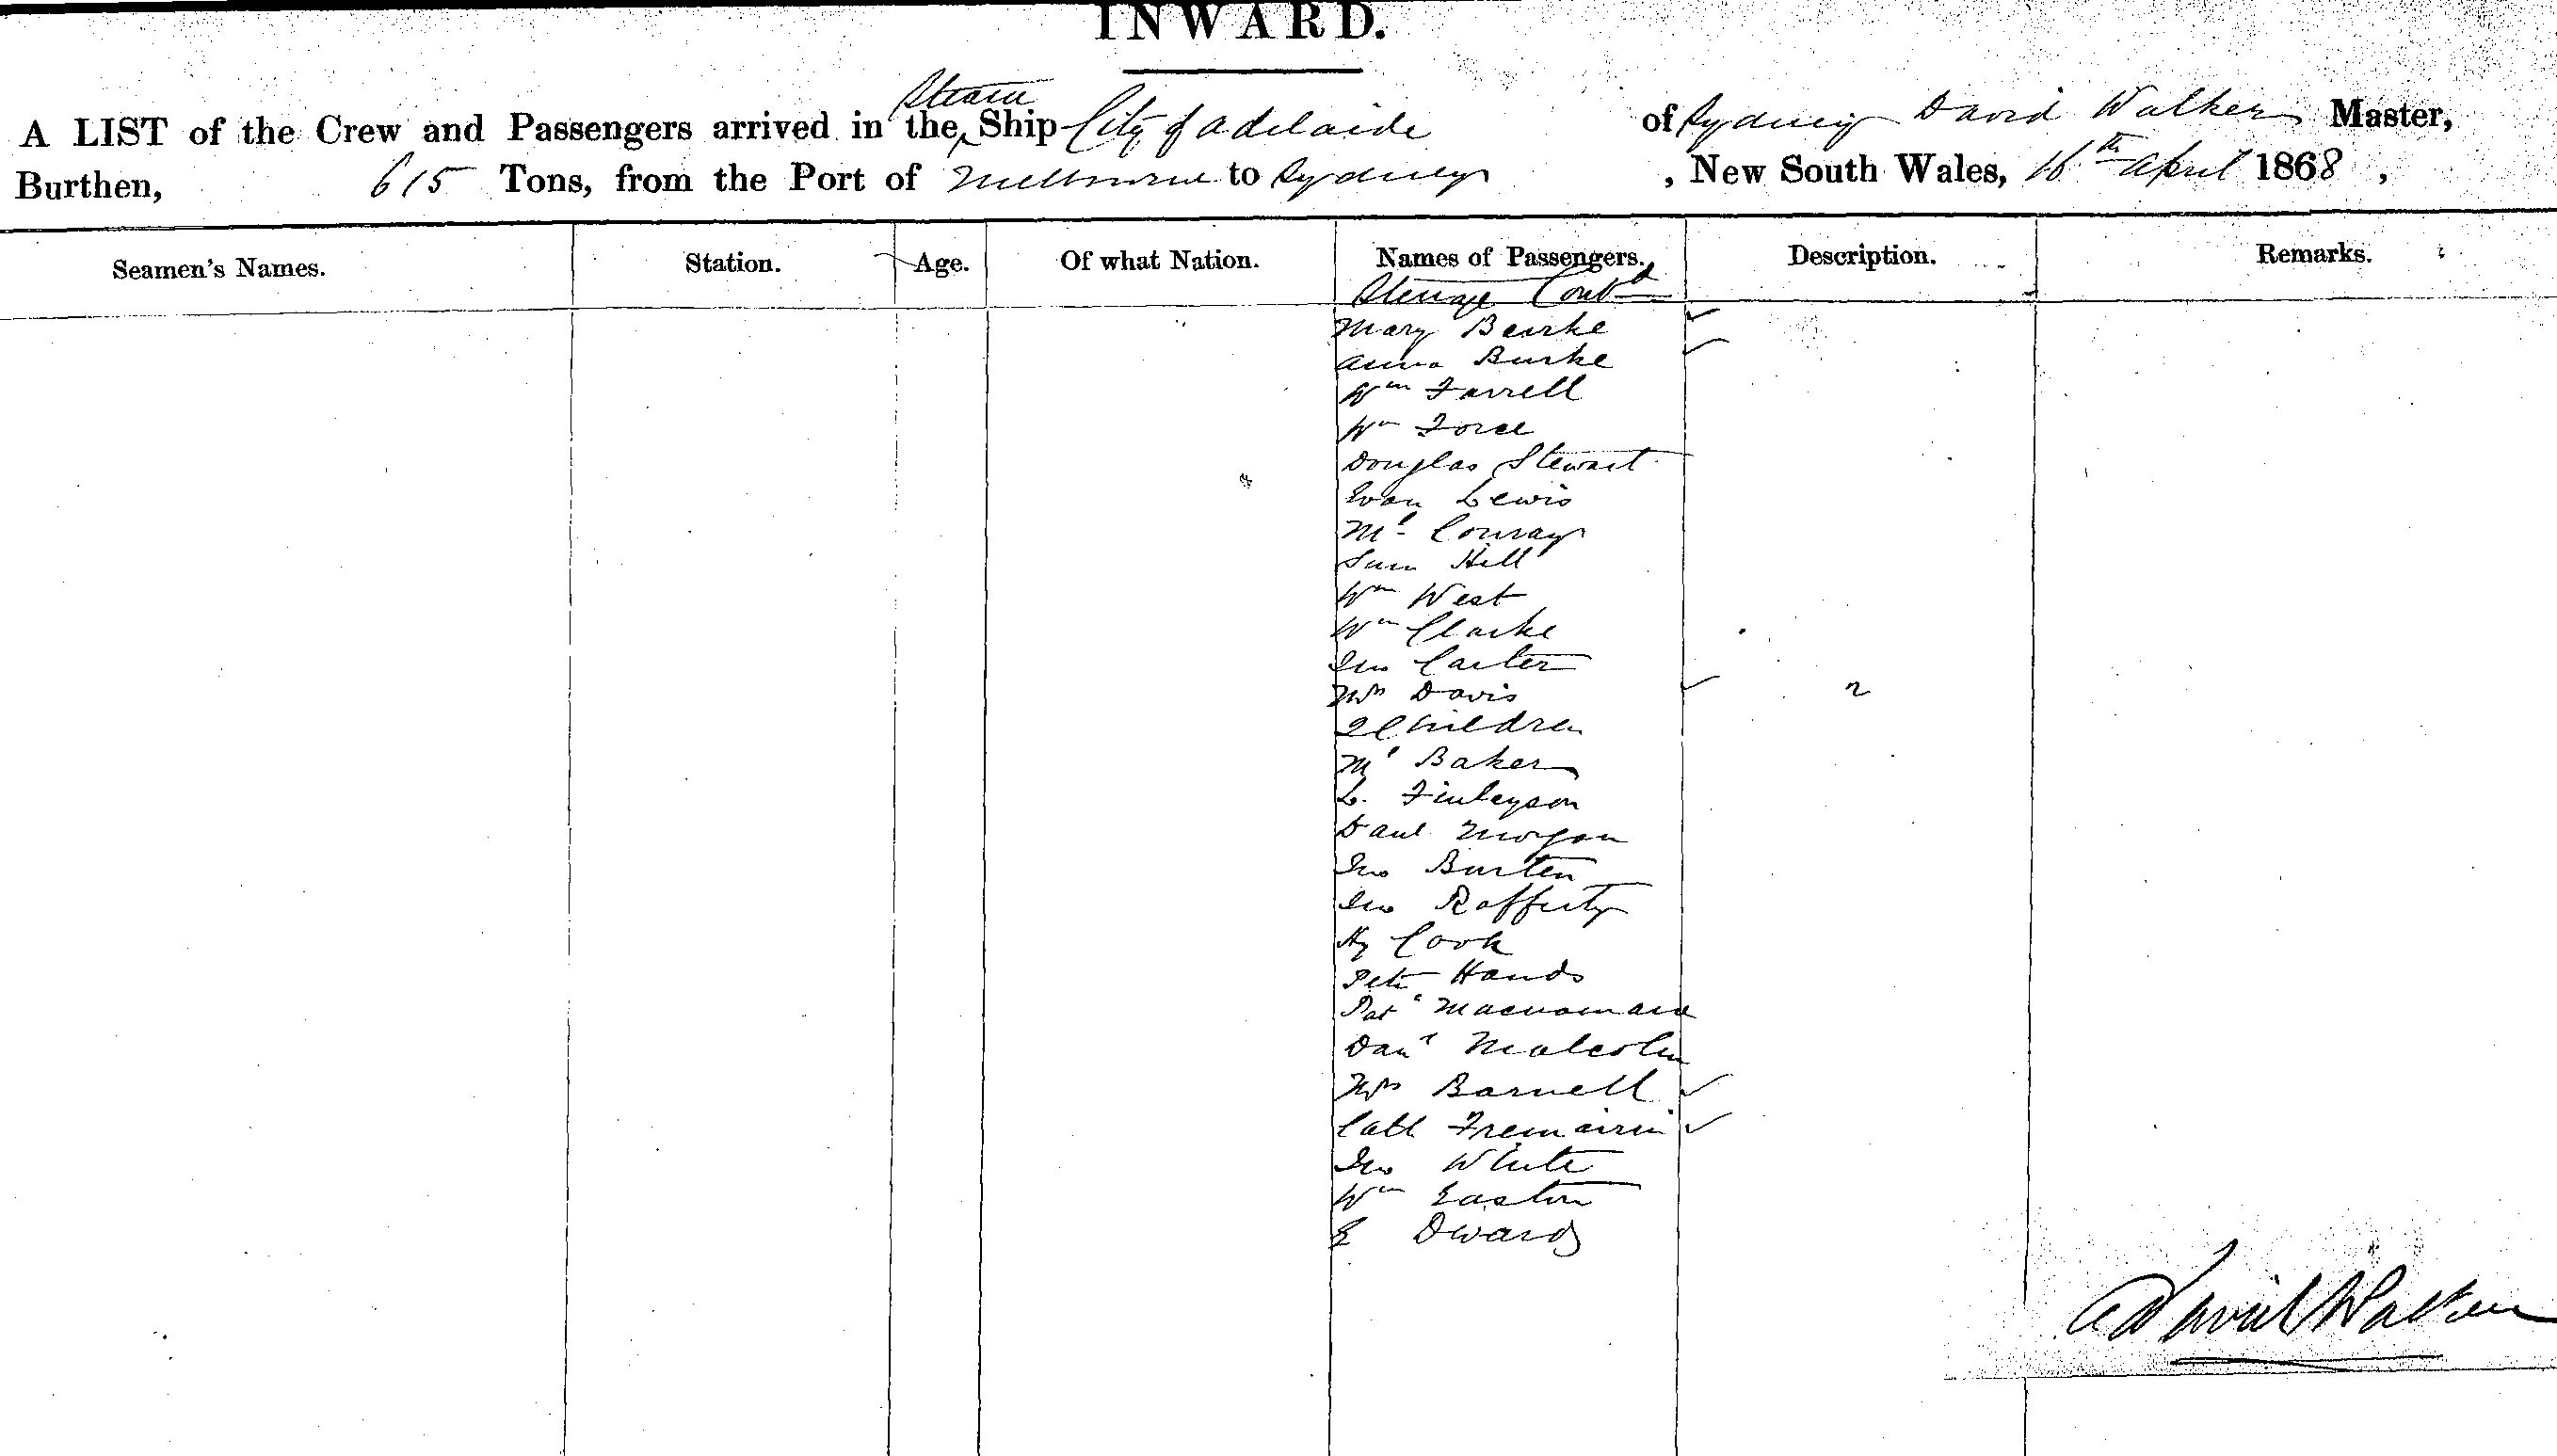 INWARD.
Steam
A LIST of the Crew and Passengers arrived in the Ship City of Adelaide of Sydney David Walker Master,
Burthen, 615 Tons, from the Port of Melbourne to Sydney , New South Wales, 16th April 1868 ,
Seamen's Names. Station. Age. Of what Nation. Names of Passengers. Description. Remarks.
Steerage Contd
Mary Bourke
Anna Burke
Wm Farrell
Wm Force
Douglas Stewart
Evan Lewis
Mr Conray
Sam Hill
Wm West
Wm Clarke
Jno Carter
Mrs Davis 2
2 Children
Mr Baker
L. Finleyson
Danl Morgan
Jno Burten
Jno Rafferty
Hy Cook
Peter Hands
Pat Macnamara
Danl Malcolm
Mrs Barnell
Cath
Jno White
Wm Easton
E Dwards
David Walker